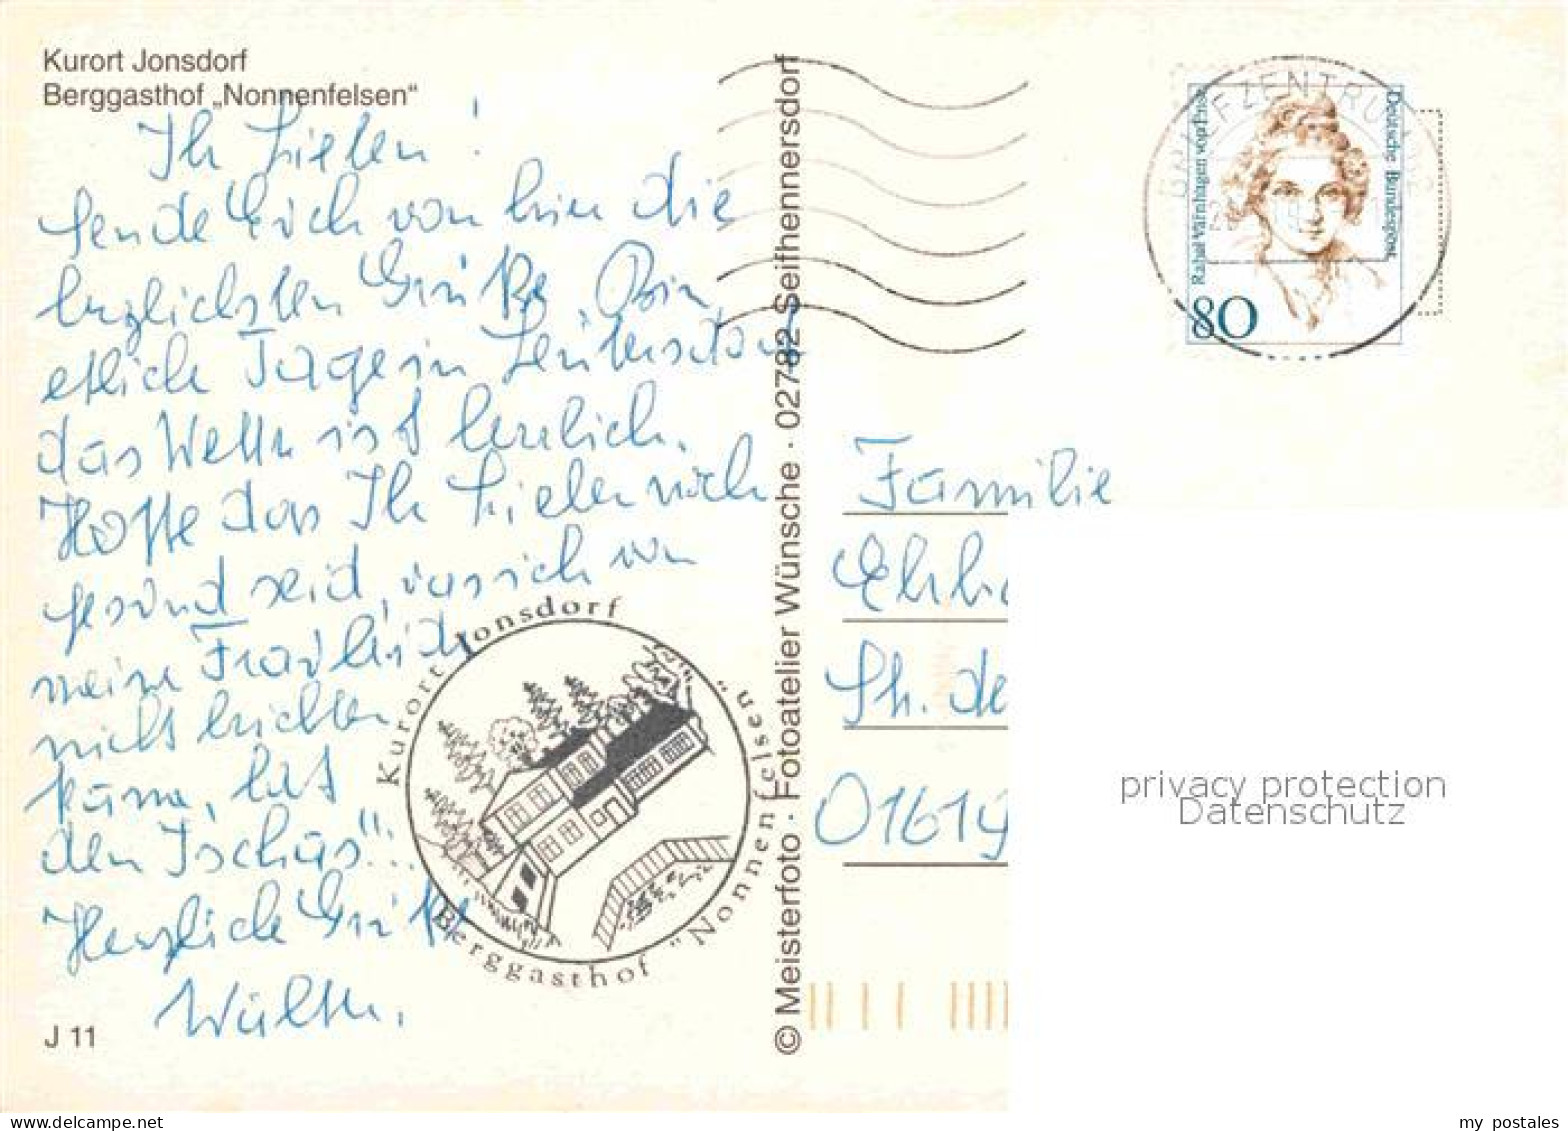 Kurort Jonsdorf
Berggasthof „Nonnenfelsen“
Ihr Lieben!
Sende Euch von hier die
herzlichsten Grüße. Bin
etliche Tage in Leutersdorf
das Wetter ist herrlich.
Hoffe das Ihr Lieben noch
gesund seid, was ich von
meine
nicht
kann, hat
den Ischias"!!
Herzliche Grüße
Walter.
J 11
Kurort Jonsdorf
Berggasthof "Nonnenfelsen"
© Meisterfoto · Fotoatelier Wünsche · 02782 Seifhennersdorf
BRIEFZENTRUM
Deutsche Bundespost
Rahel Varnhagen von Ense
80
Familie
Str. de
01619
privacy protection
Datenschutz
my postales